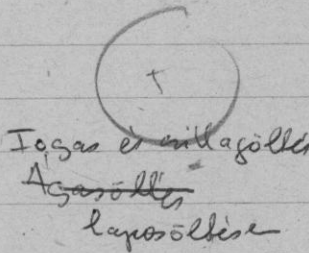 Fogas és csillagöltés
Ágasöltés
laposöltésen